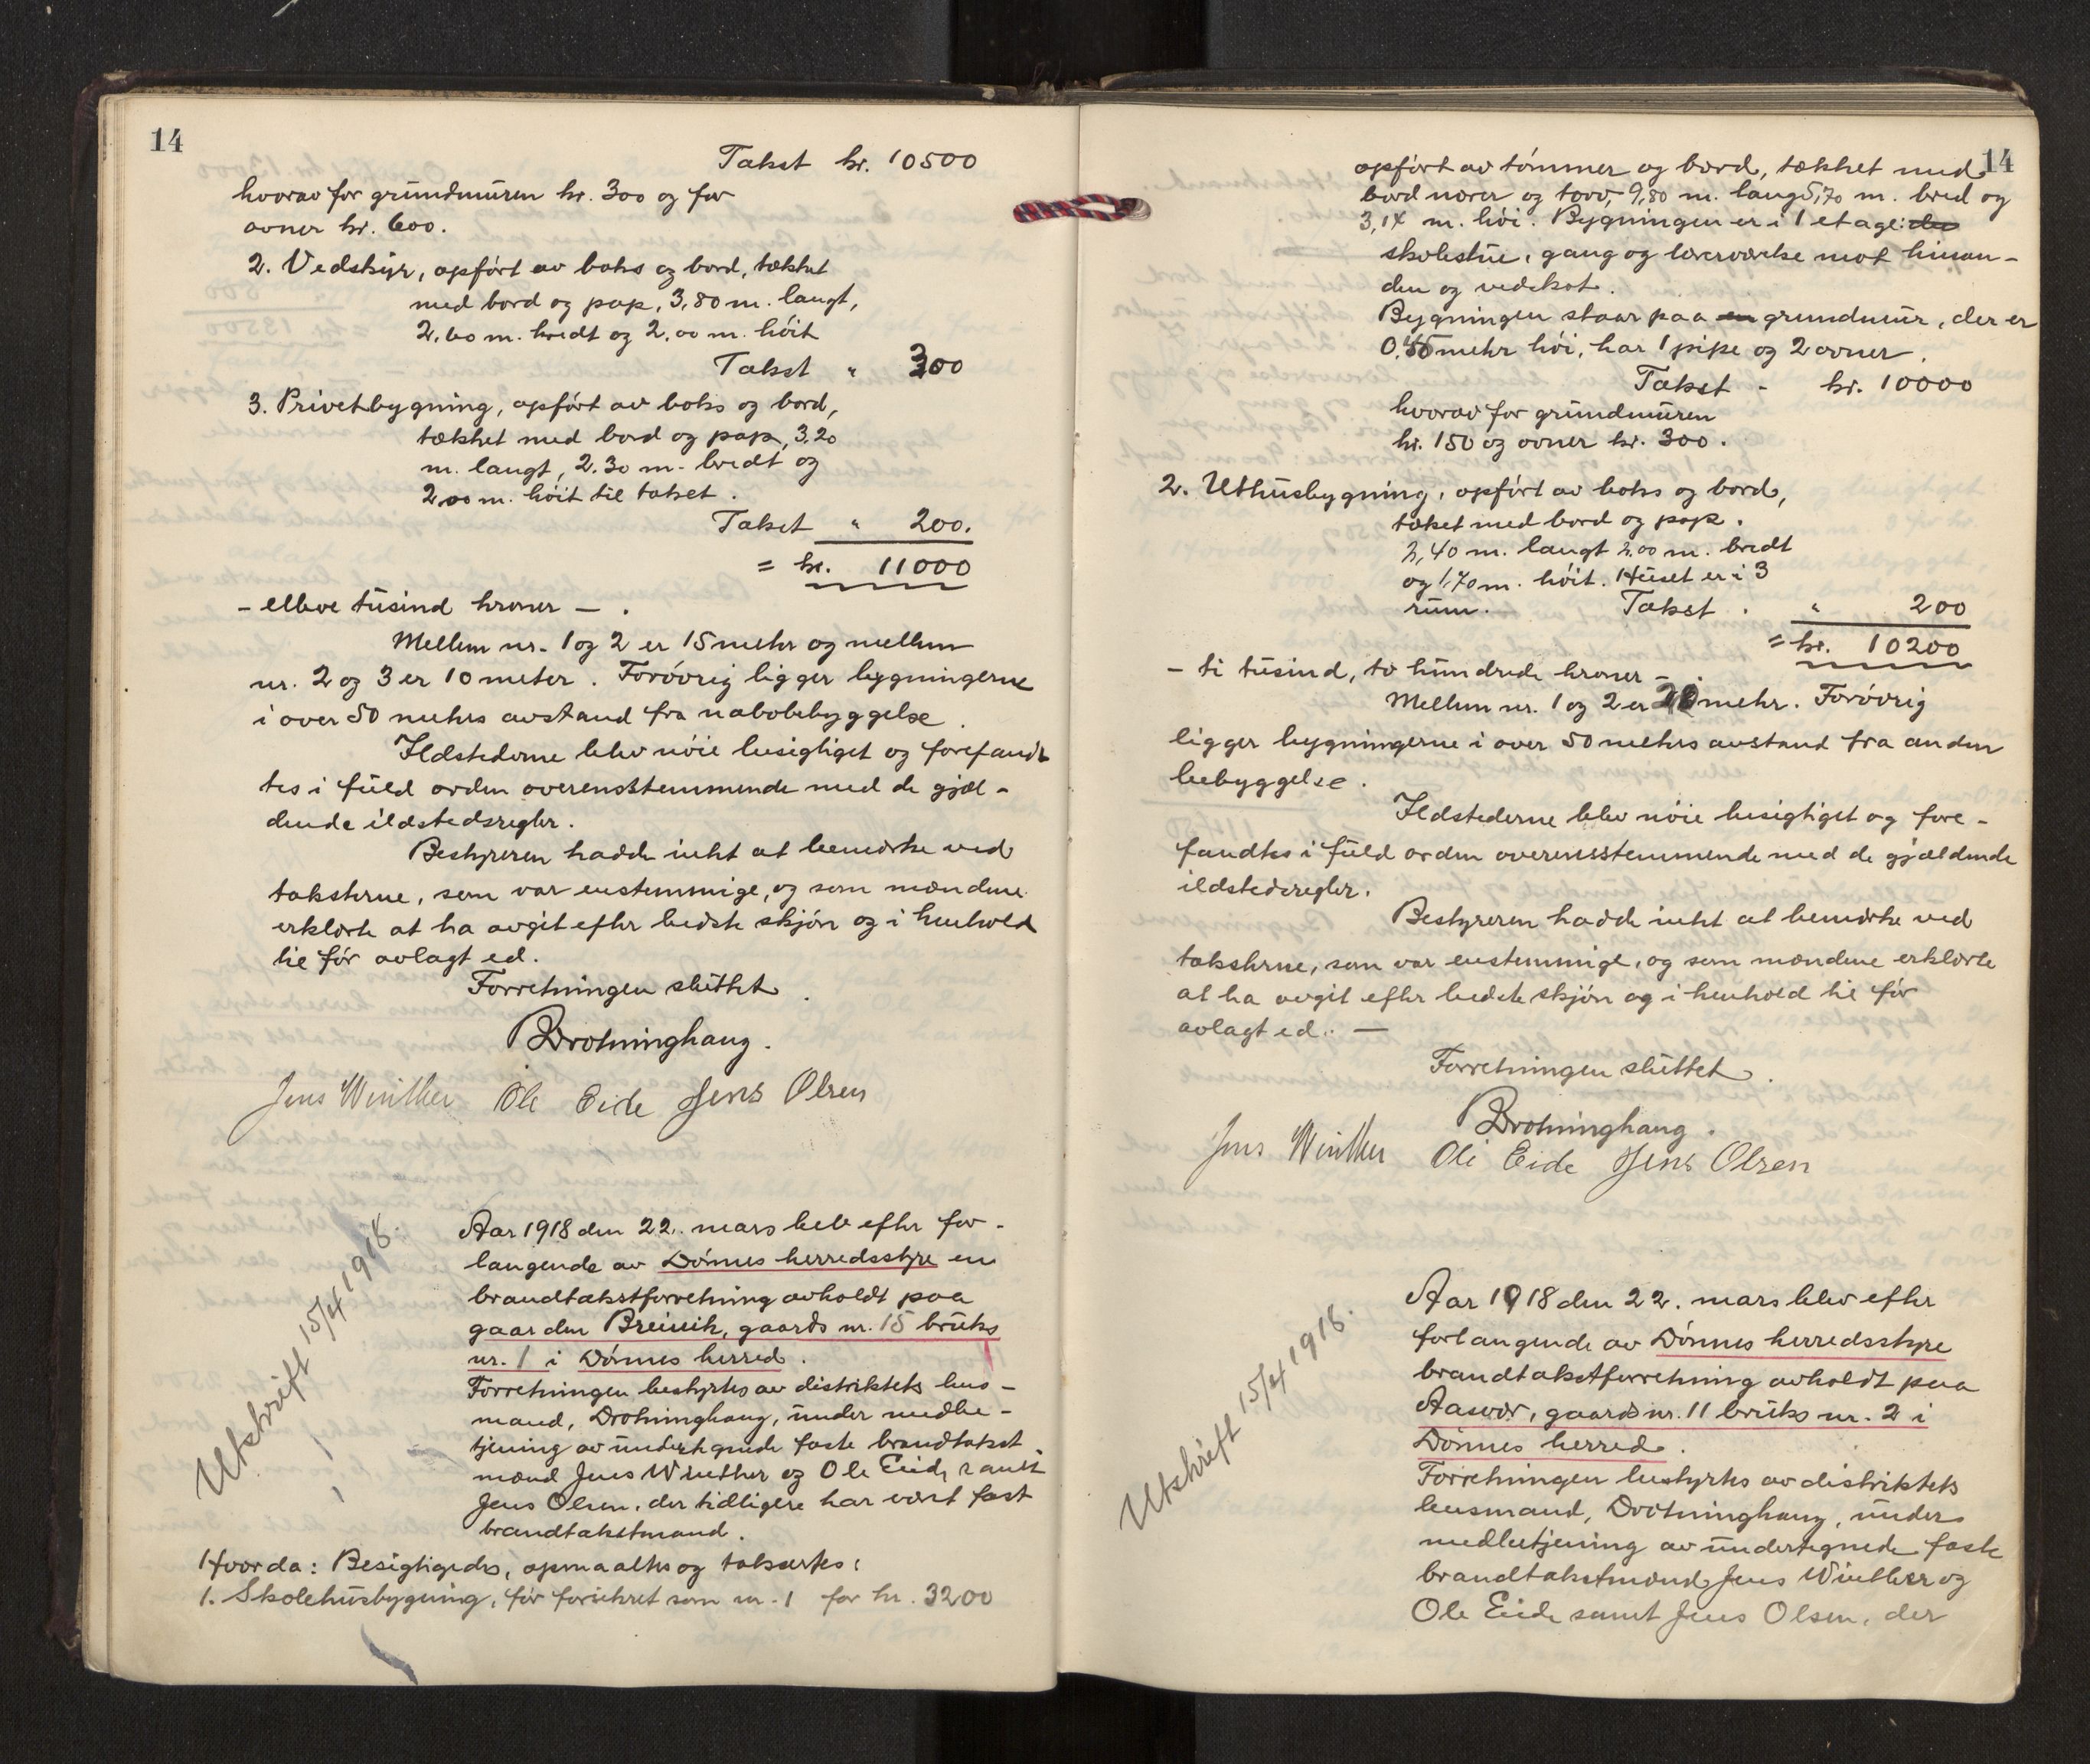 14
Takst kr. 10500
hvorav for grundmuren kr. 300 og for
ovner kr. 600.
2. Vedskjur, opført av boks og bord, tækket
med bord og pap, 3,80 m. langt,
2,60 m. bredt og 2,00 m. høit
Takst " 300
3. Privetbygning, opført av boks og bord,
tækket med bord og pap, 3,20
m. langt, 2.30 m. bredt og
2,00 m. høit til taket.
Takst " 200.
= kr. 11000
- elleve tusind kroner - .
Mellem nr. 1 og 2 er 15 meter og mellem
nr. 2 og 3 er 10 meter. Forøvrig ligger bygningerne
i over 50 meters avstand fra nabobebyggelse.
Ildstederne blev nøie besigtiget og forefand-
tes i fuld orden overensstemmende med de gjæl-
dende ildstedsregler.
Bestyreren hadde intet at bemerke ved
taksterne, som var enstemmige, og som mændene
erklærte at ha avgit efter bedste skjøn og i henhold
til før avlagt ed.
Forretningen sluttet.
Drotninghaug.
Jens Winther Ole Eide Jens Olsen
Utskrift 15/4 1918.
Aar 1918 den 22. mars blev efter for-
langende av Dønnes herredsstyre en
brandtakstforretning avholdt paa
gaarden Breivik, gaards nr. 15 bruks
nr. 1 i Dønnes herred.
Forretningen bestyrtes av distriktets lens-
mand, Drotninghaug, under medbe-
tjening av undertegnede faste brandtakst-
mænd Jens Winther og Ole Eide samt
Jens Olsen, der tidligere har vært fast
brandtakstmand.
Hvorda: Besigtigedes, opmaaltes og taksertes:
1. Skolehusbygning, før forsikret som nr. 1 for kr. 3200
14
opført av tømmer og bord, tækket med
bord næver og torv, 9,80 m. lang 5,70 m. bred og
3,14 m. høi. Bygningen er i 1 etage:
skolestue, gang og lærerværelse mot hinan-
den og vedskot.
Bygningen staar paa en grundmur, der er
0,45 meter høi, har 1 pipe og 2 ovner.
Takst - kr. 10000
hvorav for grundmuren
kr. 150 og ovner kr. 300.
2. Uthusbygning, opført av boks og bord,
tækt med bord og pap.
3,40 m. langt 2.00 m. bredt
og 1,70 m. høit. Huset er i 3
rum. Takst. " 200
= kr. 10200
- ti tusind, to hundrede kroner - .
Mellem nr. 1 og 2 er meter. Forøvrig
ligger bygningerne i over 50 meters avstand fra anden
bebyggelse.
Ildstederne blev nøie besigtiget og fore-
fandtes i fuld orden overensstemmende med de gjældende
ildstedsregler.
Bestyreren hadde intet at bemerke ved
taksterne, som var enstemmige, og som mændene erklærte
at ha avgit efter bedste skjøn og i henhold til før
avlagt ed. -
Forretningen sluttet.
Drotninghaug.
Jens Winther Ole Eide Jens Olsen
Utskrift 15/4 1918.
Aar 1918 den 22. mars blev efter
forlangende av Dønnes herredsstyre
brandtakstforretning avholdt paa
Aasvær, gaards nr. 11 bruks nr. 2 i
Dønnes herred.
Forretningen bestyrtes av distriktets
lensmand, Drotninghaug, under
medbetjening av undertegnede faste
brandtakstmænd Jens Winther og
Ole Eide samt Jens Olsen, der